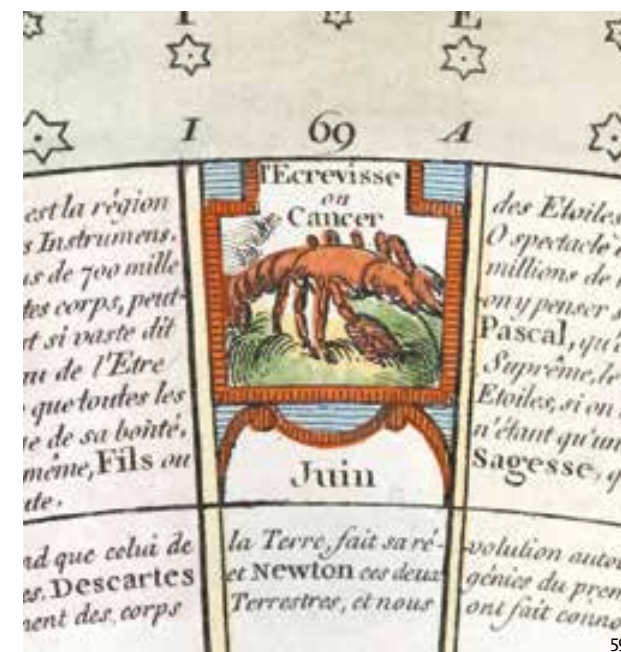 I 69 A
est la région
Instrumens.
de 700 mille
corps, peut-
si vaste dit
de l'Etre
que toutes les
de sa bonté.
même, Fils ou
l'Ecrevisse
ou
Cancer
Juin
des Etoiles
O spectacle
millions de
on y penser
Pascal, qu'i
Suprême, le
Etoiles, si on
n'étant qu'un
Sagesse,
que celui de
Descartes
ment des corps
la Terre, fait sa ré-
et Newton ces deux
Terrestres, et nous
volution autou
génies du prem
ont fait conno
59